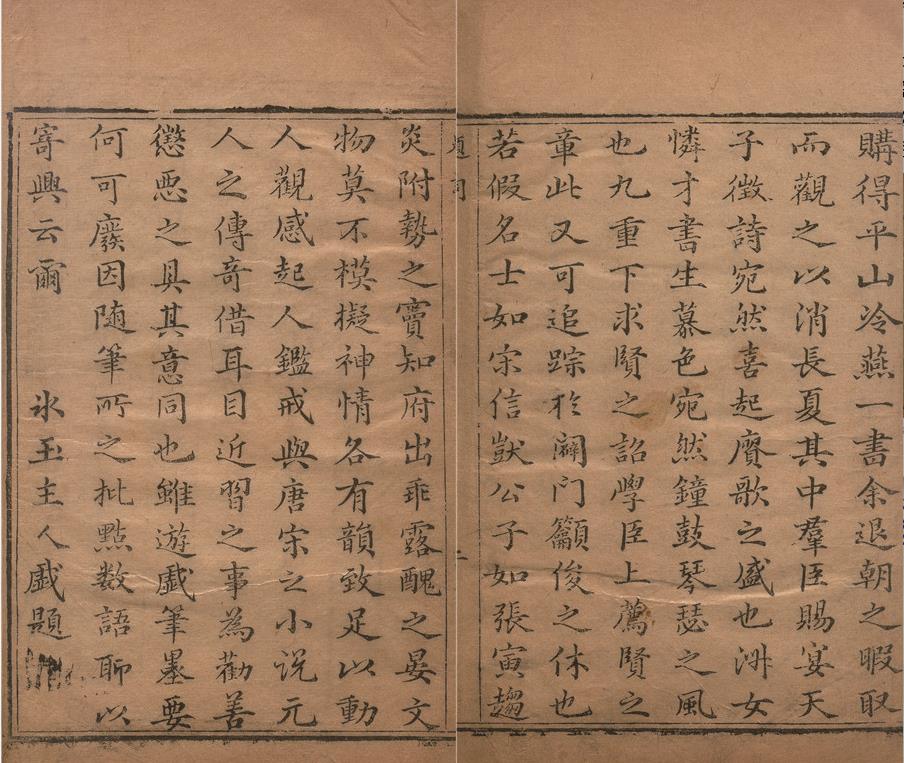 購得平山冷燕一書余退朝之暇取
而觀之以消長夏其中羣臣賜宴天
子徵詩宛然喜起賡歌之盛也淑女
憐才書生慕色宛然鐘鼓琴瑟之風
也九重下求賢之詔學臣上薦賢之
章此又可追踪於闢門籲俊之休也
若假名士如宋信獃公子如張寅趨
題詞
二
炎附勢之竇知府出乖露醜之晏文
物莫不模擬神情各有韻致足以動
人觀感起人鑑戒與唐宋之小說元
人之傳奇借耳目近習之事為勸善
懲惡之具其意同也雖遊戲筆墨要
何可廢因随筆所之批點数語聊以
寄興云爾 氷玉主人戲題